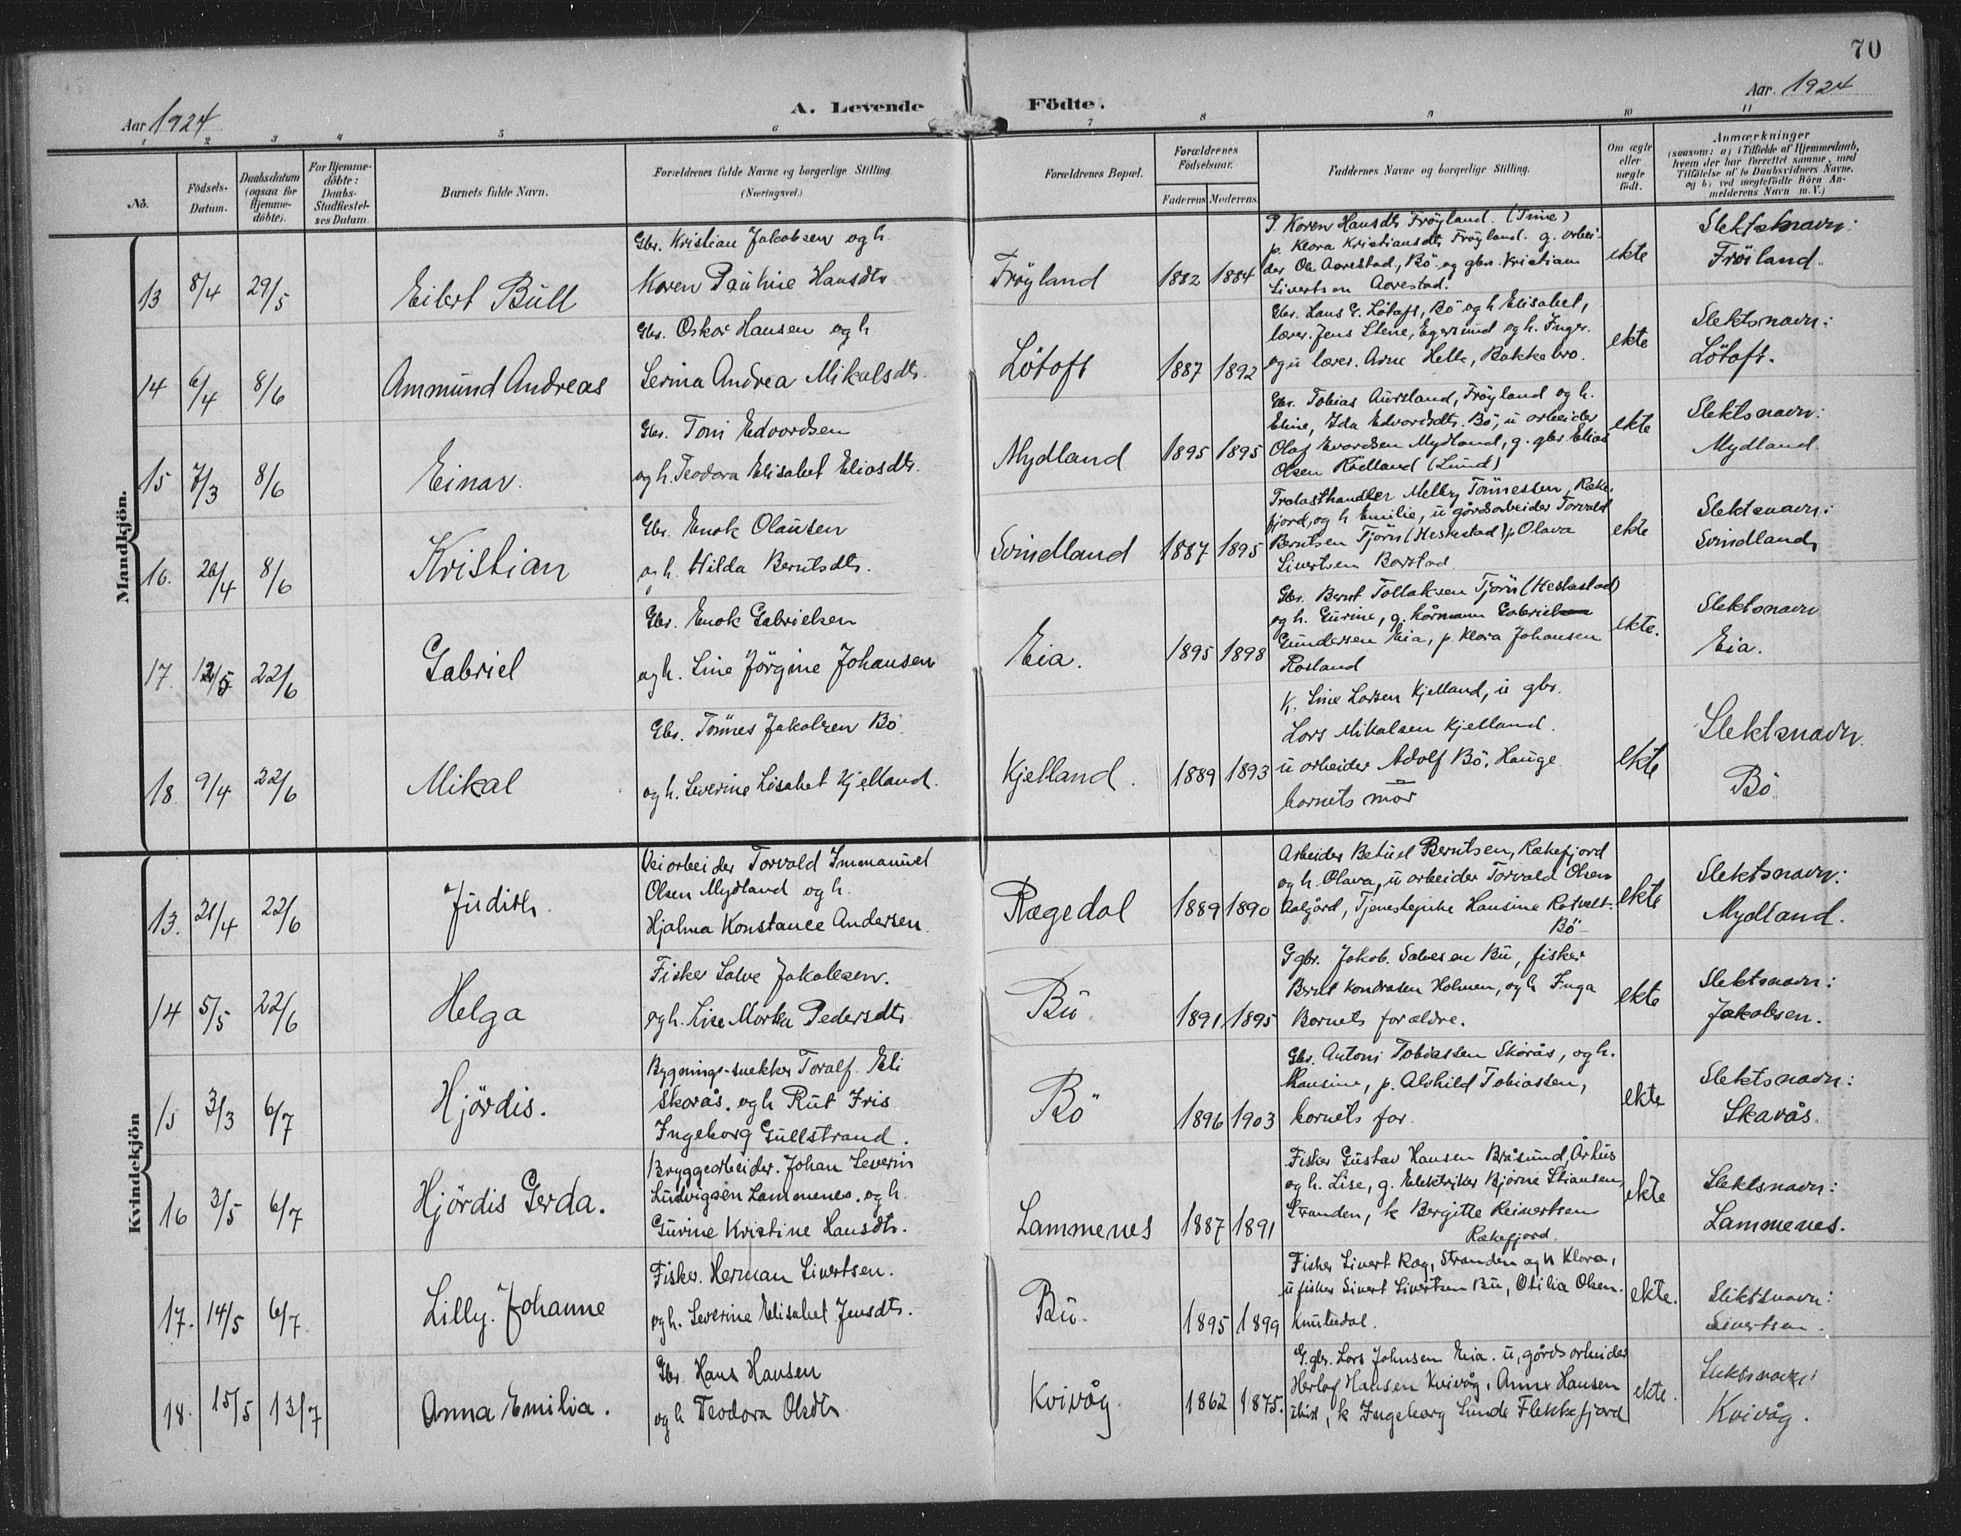 70
Aar 1924
A. Levende Födte.
Aar 1924
1 2 3 4 5 6 7 8 9 10 11
No.
Födsels-Datum.
Daabsdatum (ogsaa for Hjemmedöbte).
For Hjemmedöbte: Daabs-Stadfæstelses Datum.
Barnets fulde Navn.
Forældrenes fulde Navne og borgerlige Stilling (Næringsvei.)
Forældrenes Bopæl.
Forældrenes Födselsaar.
Faderens Moderens
Faddernes Navne og borgerlige Stilling.
Om ægte eller uægte födt.
Anmærkninger
(saasom: a) i Tilfælde af Hjemmedaab, hvem der har forrettet samme, med Tilföielse af to Daabsvidners Navne, og b) ved uægtefödte Börn Anmelderens Navn m. V.)
Mandkjön.
13 8/4 29/5 Eilert Bull
Gbr. Kristian Jakobsen og h.
Karen Pauline Hansdtr
Fröyland 1882 1884
P. Karen Hansdtr Fröyland. (Time)
p. Klara Kristiansdtr Fröyland. g. arbei-
der Ole Aarestad, Bö og gbr. Kristian
Sivertsen Aarestad.
ekte
Slektsnavn:
Fröiland.
14 6/4 8/6 Ammund Andreas
Gbr. Oskar Hansen og h
Serina Andrea Mikalsdtr.
Lötoft 1887 1892
Gbr. Lars G. Lötoft, Bö og h Elisabet,
lærer. Jens Stene, Egersund og h. Inger.
og u lærer. Arne Helle, Bakkebro.
ekte
Slektsnavn:
Lötoft.
15 7/3 8/6 Einar.
Gbr. Toni Edvardsen
og h. Teodora Elisabet Eliasdtr.
Mydland 1895 1895
Gbr. Tobias Aursland, Fröyland og h.
Eline, Ida Edvardsdtr. Bö, u arbeider
Olaf Evardsen Mydland, g. gbr Elias
Olsen (Lund)
ekte
Slektsnavn:
Mydland
16. 20/4 8/6 Kristian
Gbr. Enok Olausen
og h. Hilda Berntsdtr.
Svindland 1887 1895
Trelasthandler Melby Tönnessen, Reke-
fjord, og h Emilie, u gårdsarbeider Torvald
Berntsen Tjörn (Heskestad) p. Olava
Sivertsen Barstad
ekte
Slektsnavn:
Svindland
17. 12/5 22/6 Gabriel
Gbr. Enok Gabrielsen
og h. Line Jörgine Johansen
Eia. 1895 1898
Gbr. Bernt Tollaksen Tjörn (Heskestad)
og h. Gurine, g. kårmann Gabriel
Gundersen Eia, p. Klara Johansen
Rosland
ekte.
Slektsnavn
Eia.
18 9/4 22/6 Mikal
Gbr. Tönnes Jakobsen Bö
og h. Severine Lisabet Kjelland.
Kjelland. 1889 1893
K. Line Larsen Kjelland, u gbr.
Lars Mikalsen Kjelland.
u arbeider Adolf Bö, Hauge
barnets mor
ekte
Slektsnavn
Bö
Kvindekjön
13. 21/4 22/6 Judith.
Veiarbeider Torvald Immanuel
Olsen Mydland og h.
Hjalma Konstance Andersen.
Rægedal 1889 1890
Arbeider Betuel Berntsen, Rekefjord
og h. Olava, u arbeider Torvald Olsen
Aalgård, Tjenestepike Hansine
Bö
ekte
Slektsnavn:
Mydland.
14 5/5 22/6 Helga
Fisker Salve Jakobsen.
og h. Lise Marta Pedersdtr.
Bu. 1891 1895
G gbr. Jakob. Salvesen Bu, fisker
Bernt Kondrasen Holmen, og h Inga
Barnets forældre.
ekte
Slektsnavn:
Jakobsen.
15 3/3 6/7 Hjördis.
Bygnings-snekker Toralf. Eli
Skarås. og h Rut Iris
Ingeborg Gullstrand.
Bö 1896 1903
Gbr. Antoni Tobiassen Skarås, og h.
Hansine, p. Alvhild Tobiassen,
barnets far.
ekte
Slektsnavn:
Skarås.
16 3/5 6/7 Hjördis Gerda.
Bryggearbeider. Johan Severin
Ludvigsen Lammenes. og h.
Gurine Kristine Hansdtr.
Lammenes 1887 1891
Fisker Gustav Hansen Bråsund, Århus
og h. Lise, g. Elektriker Bjarne Stiansen,
Stranden, k Bergitte Reinertsen
Rekefjord.
ekte
Slektsnavn:
Lammenes.
17. 14/5 6/7. Lilly. Johanne
Fisker. Herman Sivertsen.
og h. Severine Elisabet Jensdtr.
Bu. 1895 1899
Fisker Sivert Rag, Stranden og h Klara,
u fisker Sivert Sivertsen Bu, Otilia Olsen.
ekte.
Slektsnavn:
Sivertsen.
18. 15/5 13/7 Anna Emilia.
Gbr. Hans Hansen
og h Teodora Olsdtr
Kvivåg. 1862 1875.
G. gbr. Lars Johnsen Eia. u, gårdsarbeider
Herlof Hansen Kvivåg, Anna Hansen
ibid, k Ingeborg Lunde Flekkefjord
ekte.
Slektsnavn:
Kvivåg.